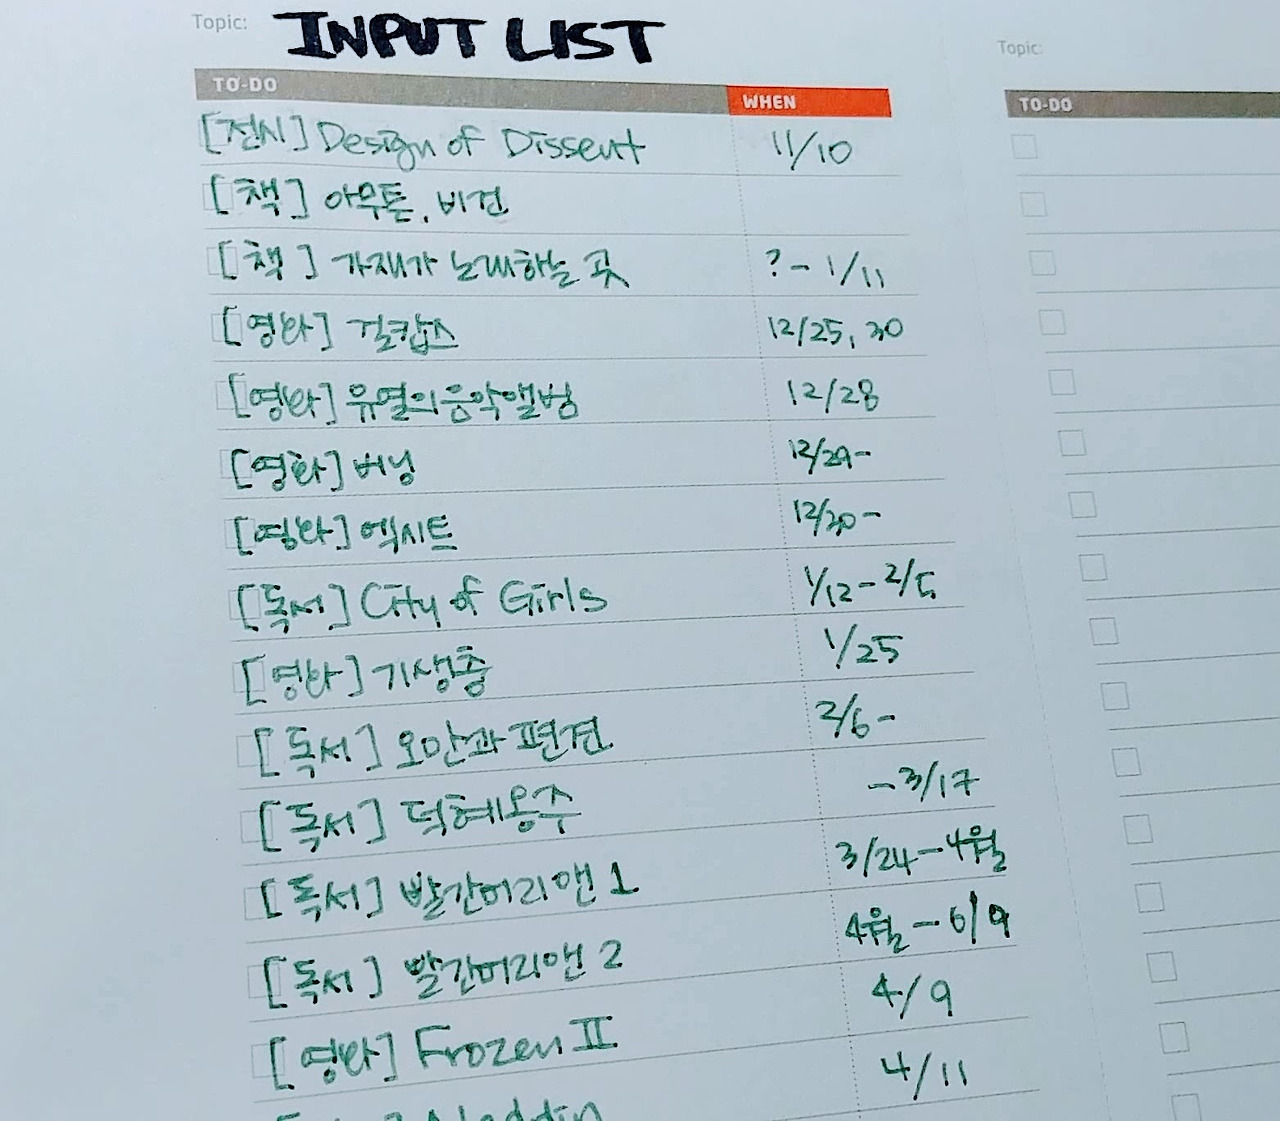 Topic: INPUT LIST
Topic:
TO-DO WHEN
TO-DO
[전시] Design of Dissent 11/10
[책] 아무튼, 비건
[책] 가재가 노래하는 곳 ? - 1/11
[영화] 걸캅스 12/25, 30
[영화] 유열의음악앨범 12/28
[영화] 버닝 12/29-
[영화] 엑시트 12/30-
[독서] City of Girls 1/12 - 2/5
[영화] 기생충 1/25
[독서] 오만과 편견 2/6 -
[독서] 덕혜옹주 - 3/17
[독서] 빨간머리앤 1 3/24 - 4월
[독서] 빨간머리앤 2 4월 - 6/9
[영화] Frozen II 4/9
Aladdin 4/11